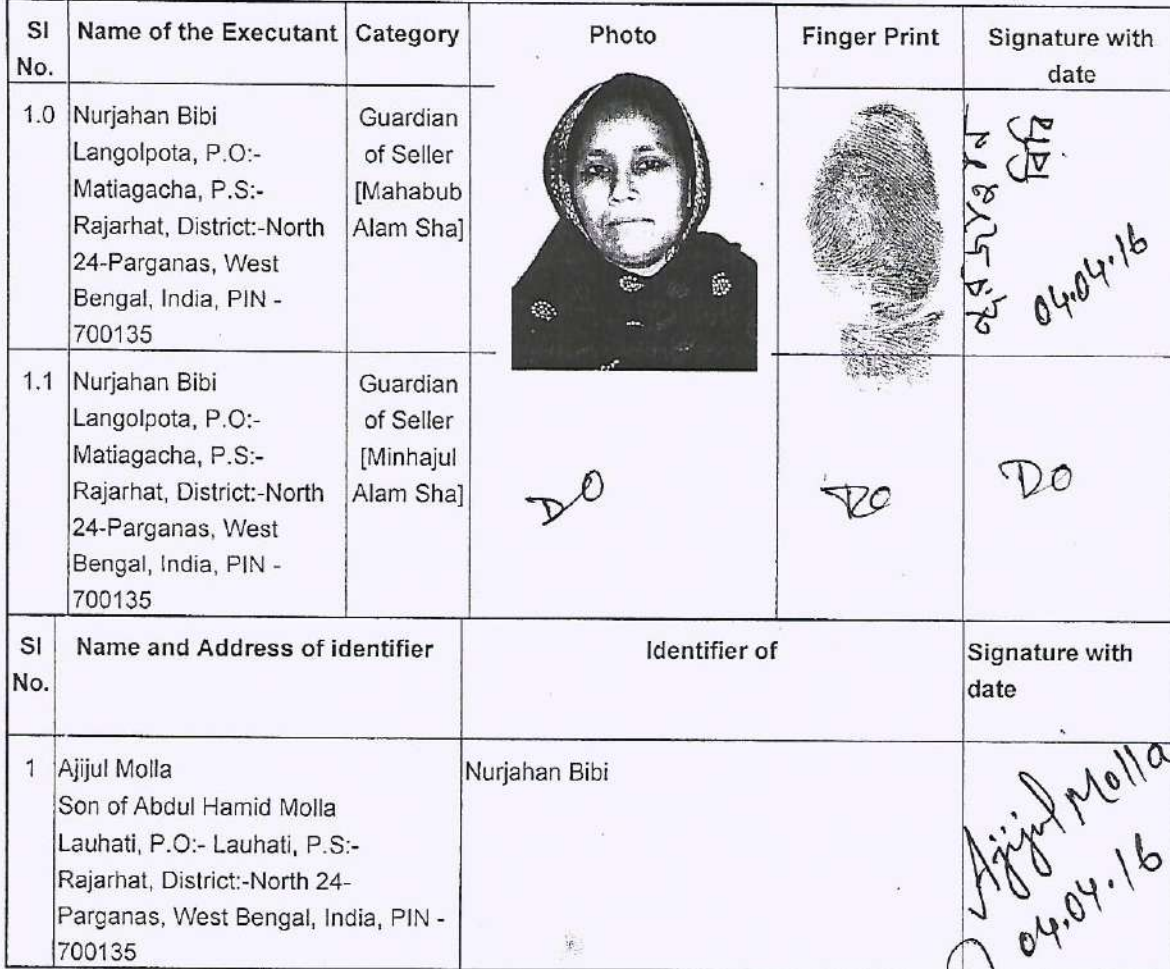 Sl No. Name of the Executant Category Photo Finger Print Signature with date
1.0 Nurjahan Bibi
Langolpota, P.O:-
Matiagacha, P.S:-
Rajarhat, District:-North
24-Parganas, West
Bengal, India, PIN -
700135
Guardian
of Seller
[Mahabub
Alam Sha]
04.04.16
1.1 Nurjahan Bibi
Langolpota, P.O:-
Matiagacha, P.S:-
Rajarhat, District:-North
24-Parganas, West
Bengal, India, PIN -
700135
Guardian
of Seller
[Minhajul
Alam Sha]
DO
DO
DO
Sl No. Name and Address of identifier Identifier of Signature with date
1 Ajijul Molla
Son of Abdul Hamid Molla
Lauhati, P.O:- Lauhati, P.S:-
Rajarhat, District:-North 24-
Parganas, West Bengal, India, PIN -
700135
Nurjahan Bibi
Ajijul Molla
04.04.16